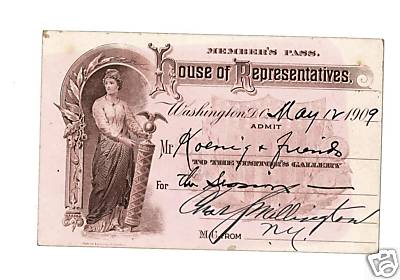 MEMBER'S PASS.
House of Representatives.
Washington, D.C. May 12 1909
ADMIT
Mr Koenig & friends
TO THE VISITOR'S GALLERY
For the Session
Chas S Millington
M.C. FROM N.Y.